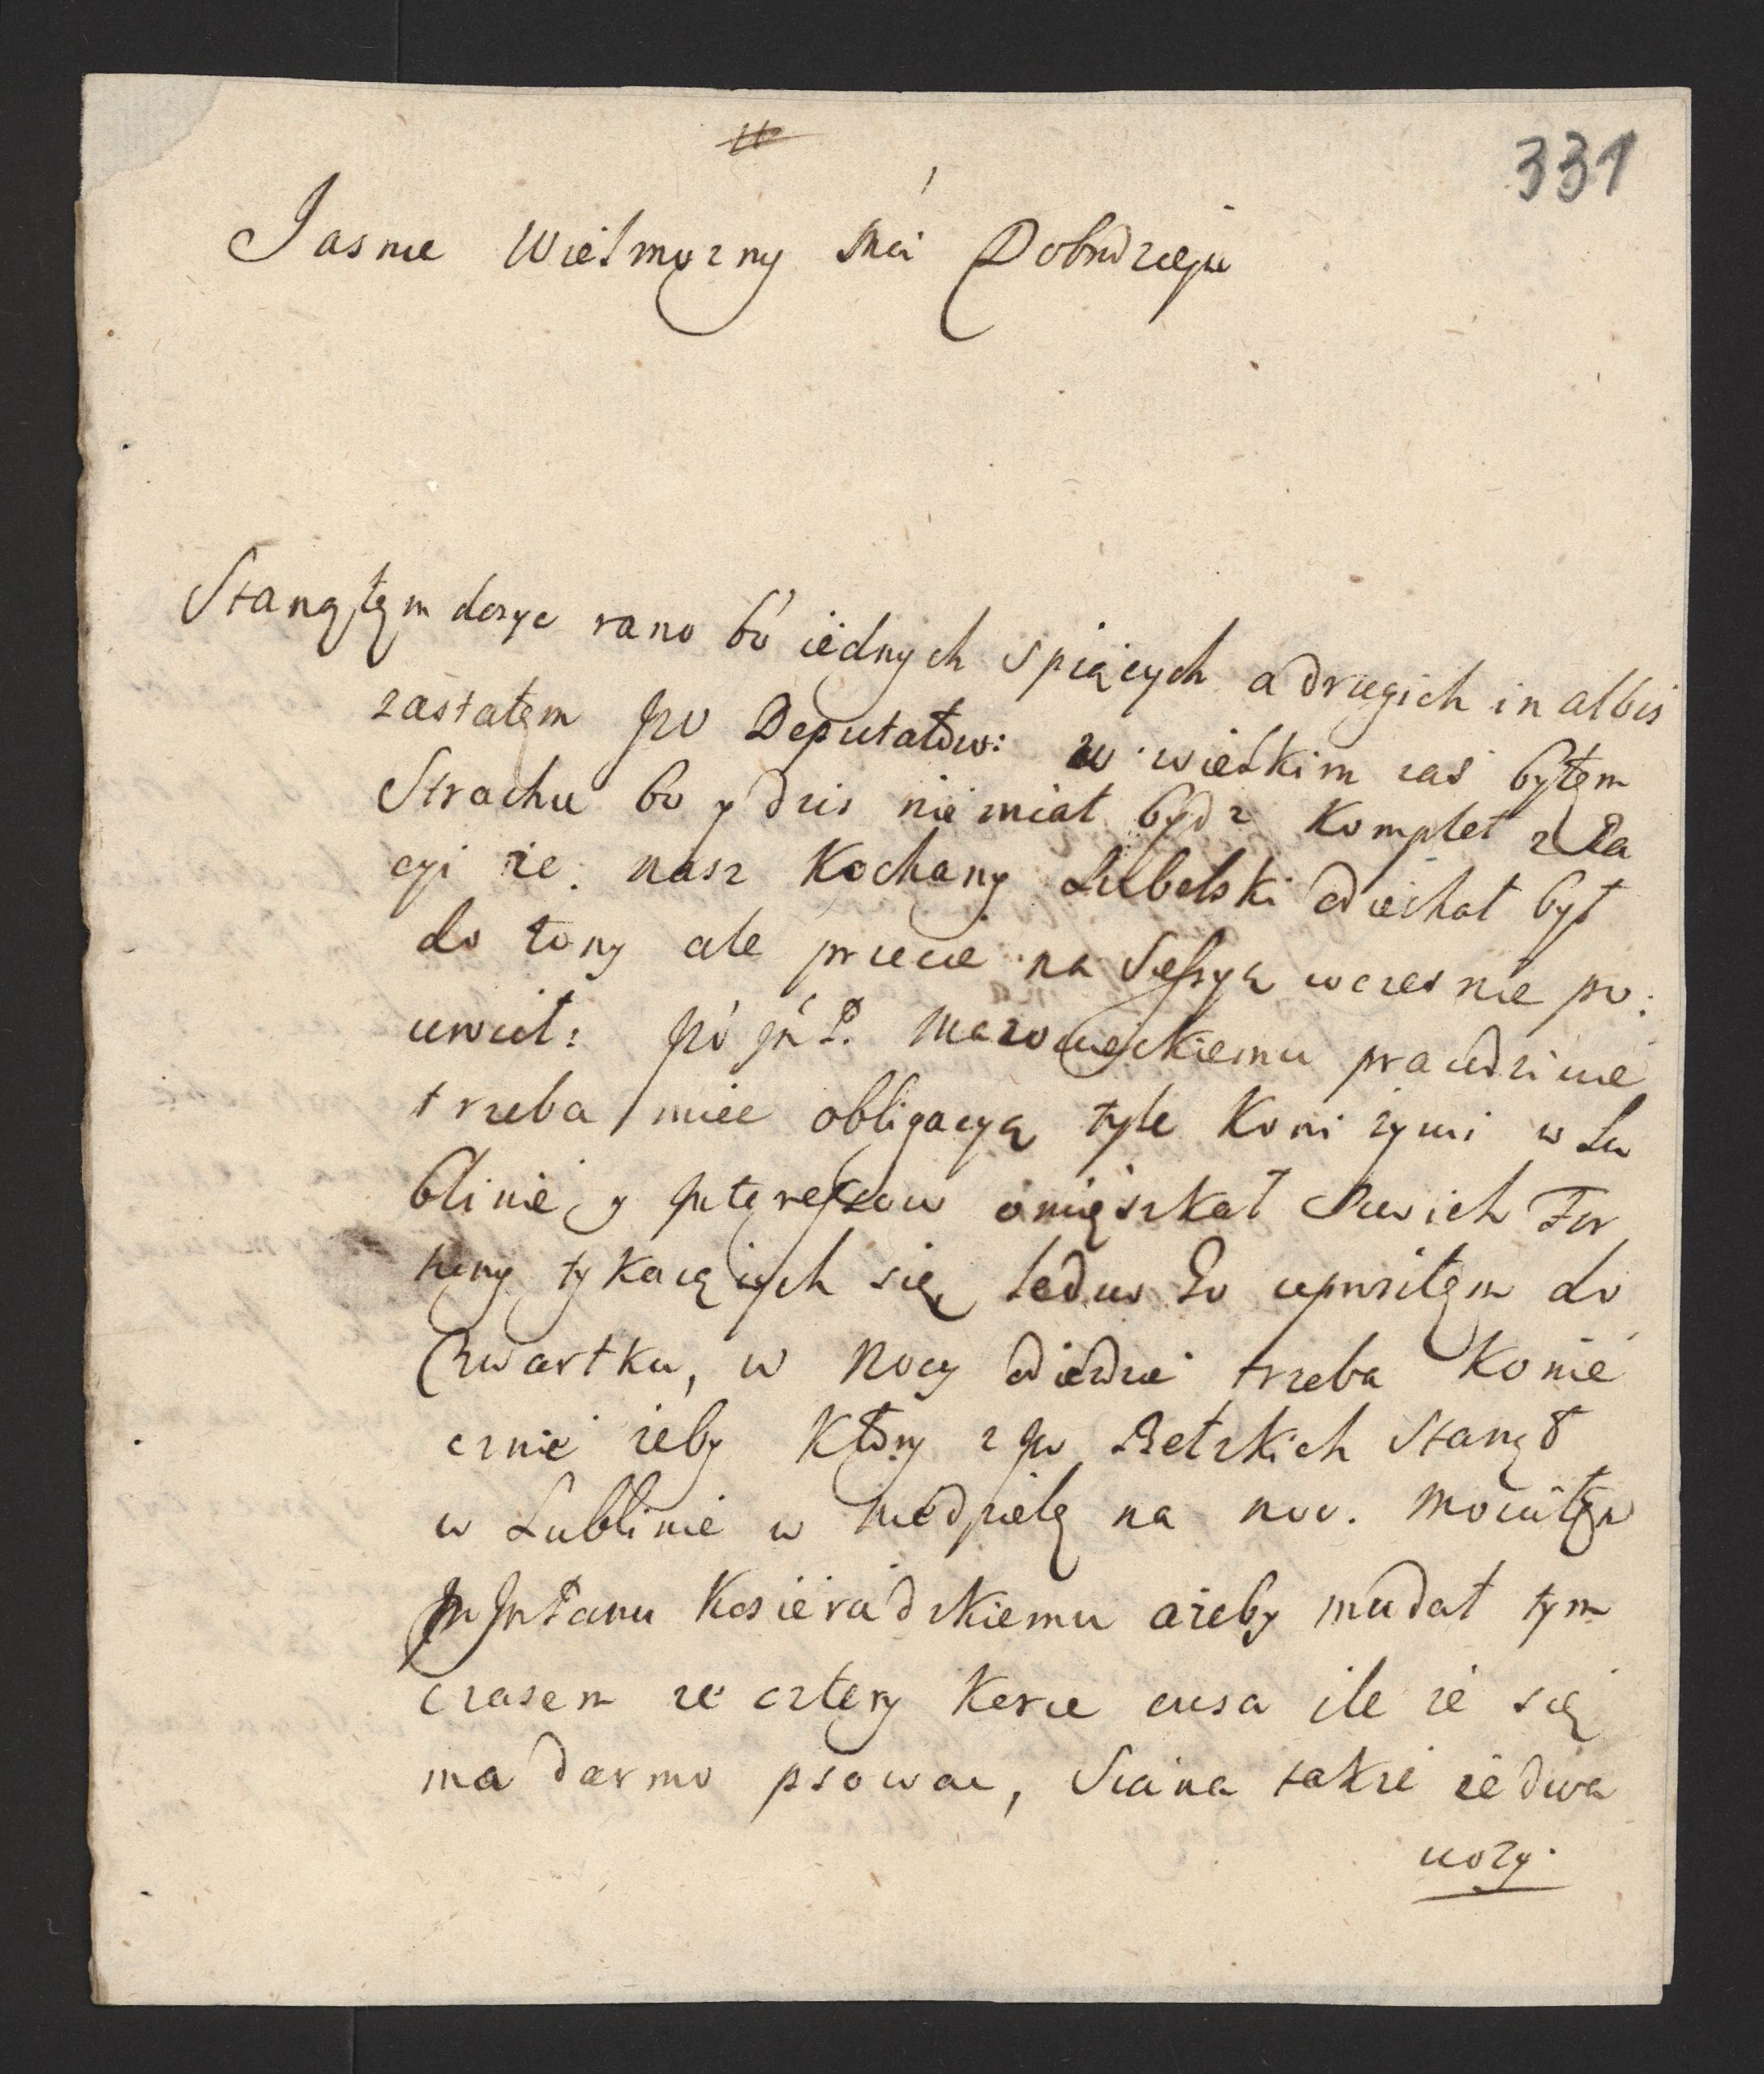 331
Jasnie Wielmozny Mći Dobrodzieju
Stanąłęm dosyc rano bo iednych spiących a drugich in albis
zastałęm Deputatow: w wielkim zas byłęm
Strachu bo y dzis nie miał bydz Komplet z Ra
cyi ze nasz Kochany Lubelski odiechał był
do żony ale przecie na Sessyą wczesnie po:
wrocił: Mazowieckiemu prawdziwie
trzeba miec obligacyą tyle Koni zywi w Lu
blinie y Jnteressow omięszkał Swich For
tuny tykaiących się, ledwo Go uprosiłęm do
Czwartku, w Nocy odiedzie trzeba Konie
cznie zeby Ktory z Bełzkich Stanął
w Lublinie w Niedzielę na noc. Mowiłęm
Panu Kosieradzkiemu azeby mu dał tym
czasem ze cztery Korce owsa ile ze się
ma darmo psowac, Siana takze ze dwa
wozy.